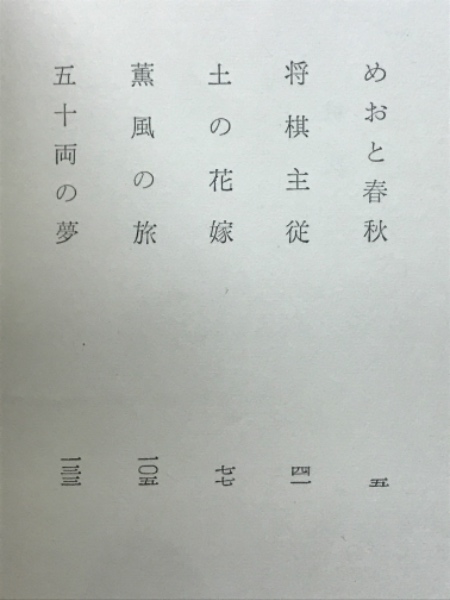 めおと春秋 五
将棋主従 四一
土の花嫁 七七
薫風の旅 一〇五
五十両の夢 一三三